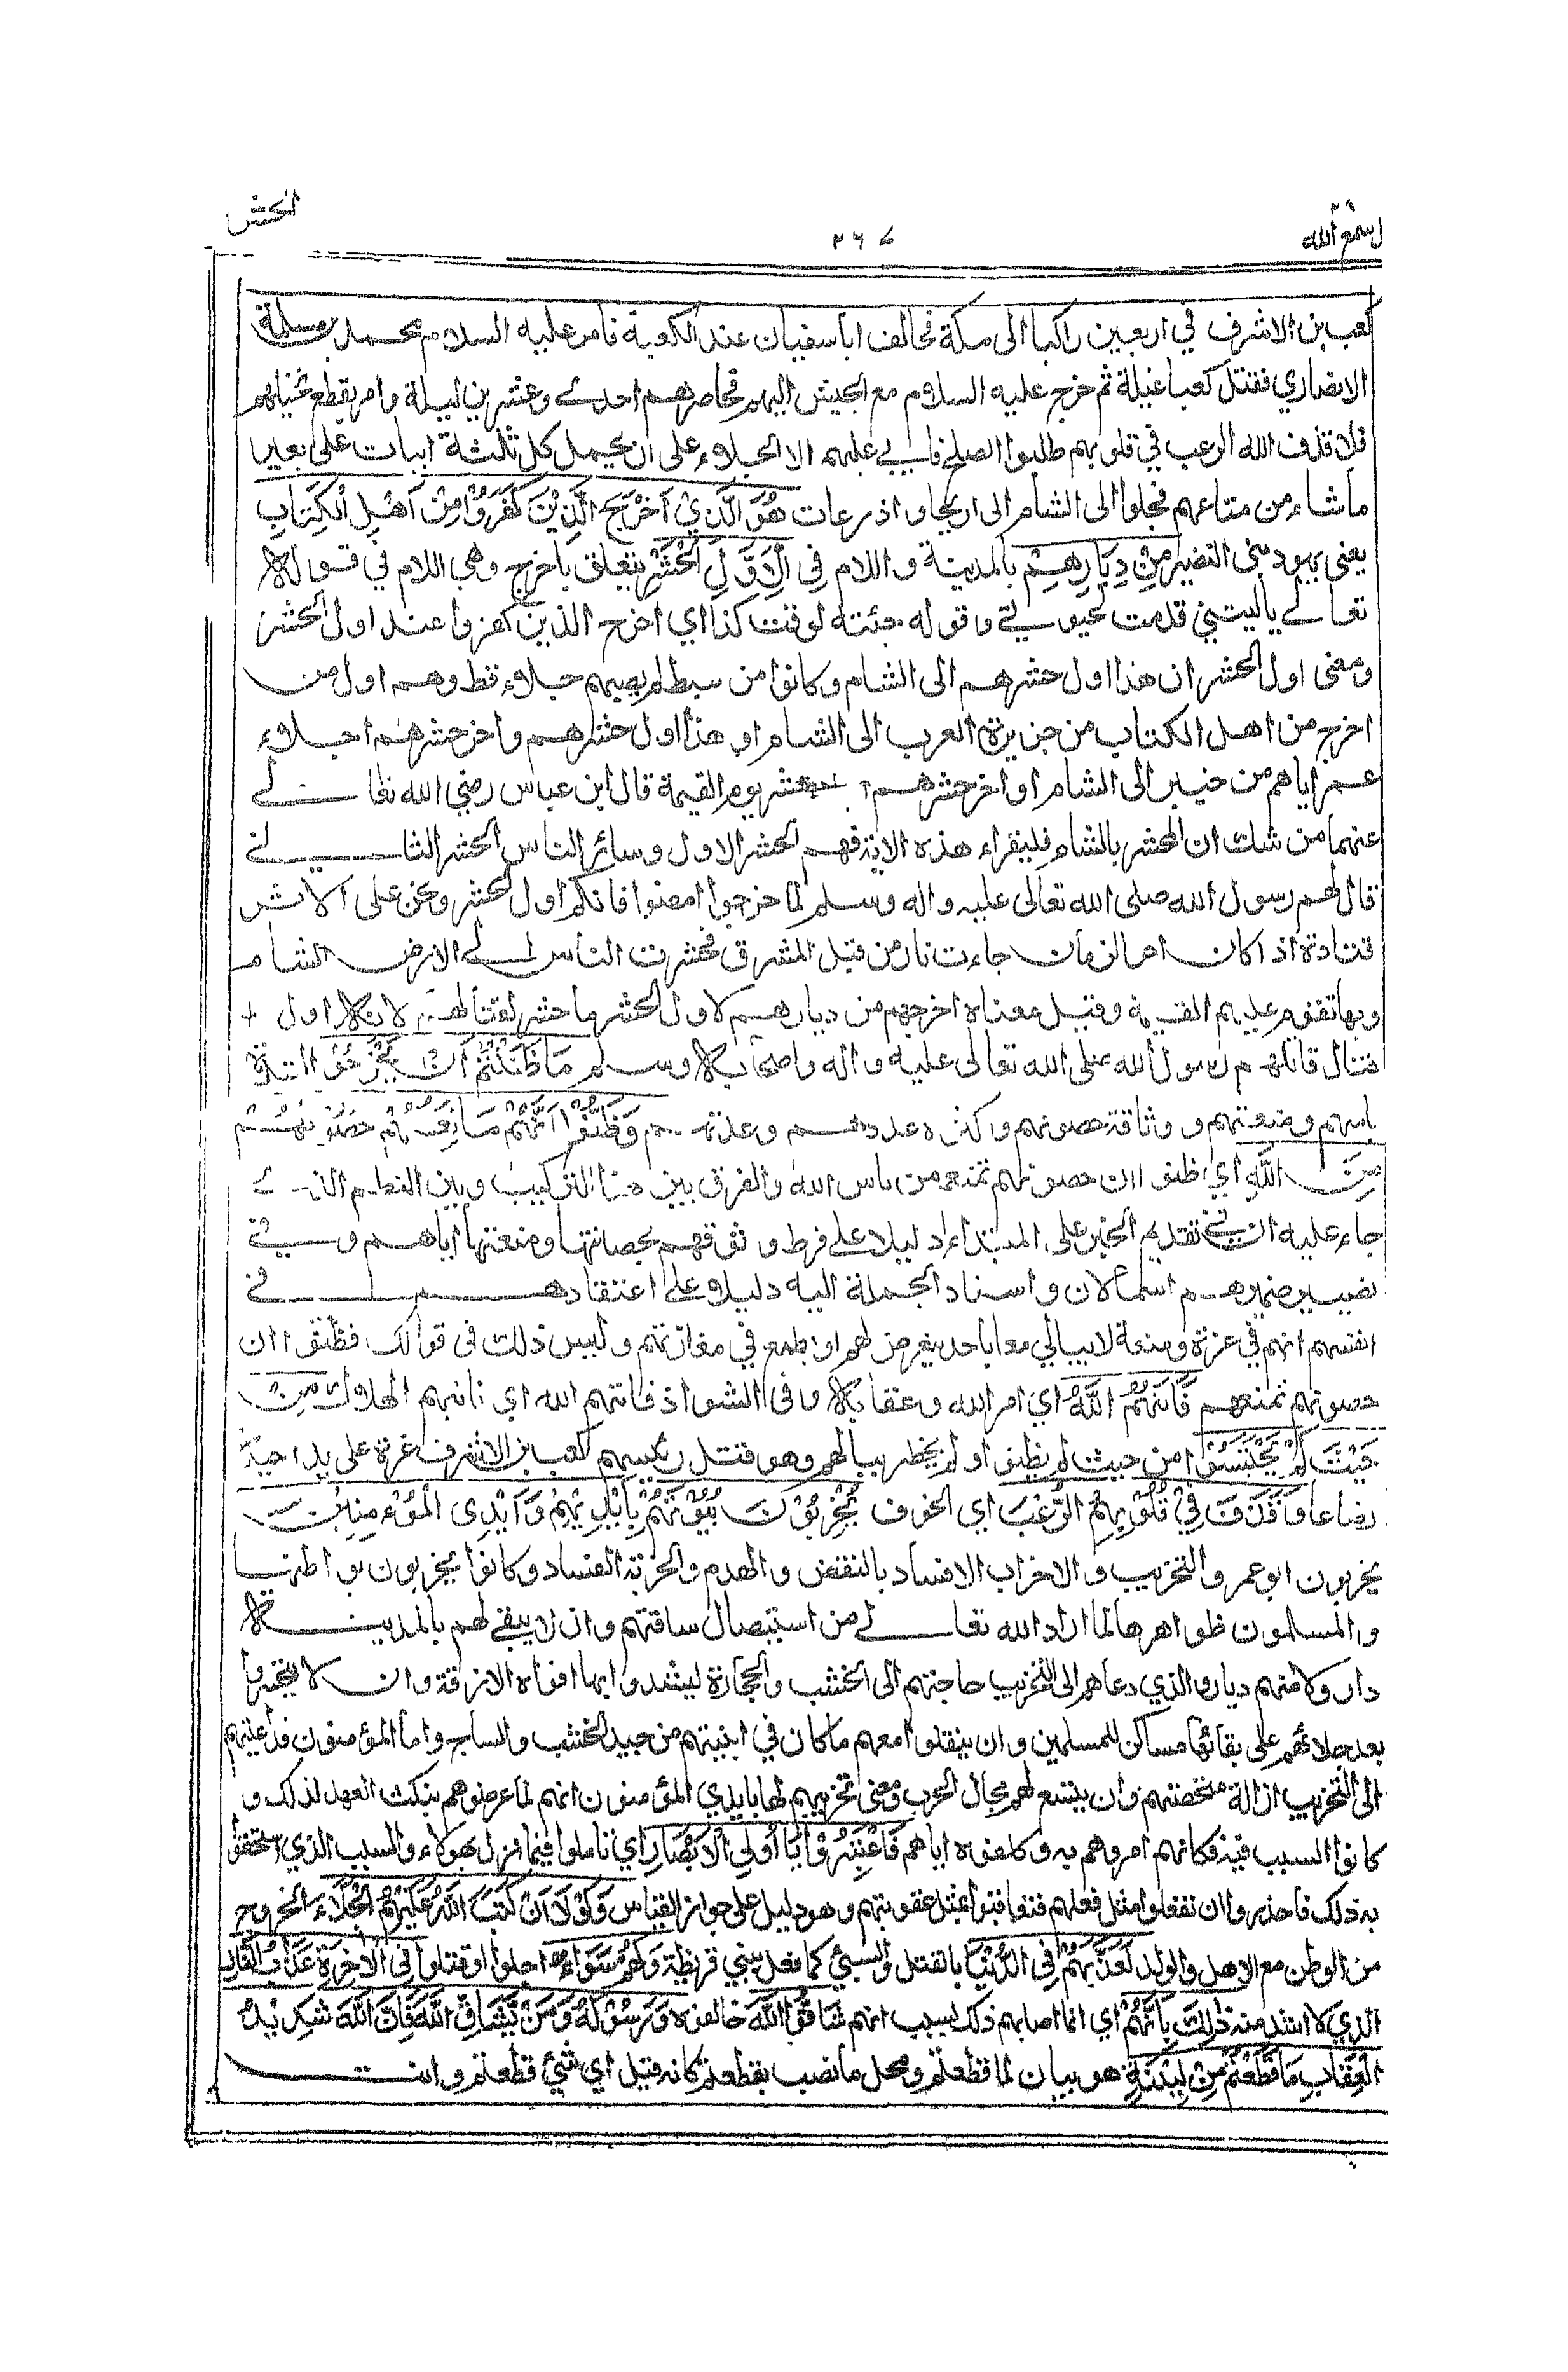 الحشر
٢٦٧
قد سمع الله ٢٨
كعب بن الاشرف في اربعين راكبا الى مكة فحالف ابا سفيان عند الكعبة فامر عليه السلام محمد بن مسلمة
الانصاري فقتل كعبا غيلة ثم خرج عليه السلام مع الجيش اليهم فحاصرهم احدى وعشرين ليلة وامر بقطع نخيلهم
فلما قذف الله الرعب في قلوبهم طلبوا الصلح فابى عليهم الا الجلاء على ان يحمل كل ثلثة ابيات على بعير
ما شاء من متاعهم فجلوا الى الشام الى اريحا واذرعات هُوَ الَّذِيْ اَخْرَجَ الَّذِيْنَ كَفَرُوْا مِنْ اَهْلِ الْكِتَابِ
يعنى يهود بنى النضير مِنْ دِيَارِهِمْ بالمدينة واللام فِى لِاَوَّلِ الْحَشْرِ يتعلق باخرج وهى اللام في قوله
تعالى ياليتني قدمت لحيوتي وقوله جئته لوقت كذا اي اخرج الذين كفروا عند اول الحشر
ومعنى اول الحشر ان هذا اول حشرهم الى الشام وكانوا من سبط لم يصبهم جلاء قط وهم اول من
اخرج من اهل الكتاب من جزيرة العرب الى الشام او هذا اول حشرهم واخر حشرهم اجلاء
عمر اياهم من خيبر الى الشام او اخر حشرهم حشر يوم القيمة قال ابن عباس رضي الله تعالى
عنهما من شك ان المحشر بالشام فليقراء هذه الاية فهم الحشر الاول وسائر الناس الحشر الثاني
قال لهم رسول الله صلى الله تعالى عليه واله وسلم لما خرجوا امضوا فانكم اول الحشر ونحن على الاثر
قتادة اذا كان اخر الزمان جاءت نار من قبل المشرق فحشرت الناس الى الارض الشام
وبها تقوم عليهم القيمة وقيل معناه اخرجهم من ديارهم لاول الحشر ما حشر لقتالهم لانه اول
قتال قاتلهم رسول الله صلى الله تعالى عليه واله واصحابه وسلم مَا ظَنَنْتُمْ اَنْ يَّخْرُجُوْا لشدة
باسهم ومنعتهم ووثاقة حصونهم وكثرة عددهم وعدتهم وَظَنُّوْا اَنَّهُمْ مَانِعَتُهُمْ حُصُوْنُهُمْ
مِنَ اللّٰهِ اي ظنوا ان حصونهم تمنعهم من باس الله والفرق بين هذا التركيب وبين النظم الذى
جاء عليه ان في تقديم الخبر على المبتداء دليلا على فرط وثوقهم بحصانتها ومنعتها اياهم وفي
تصيير ضميرهم اسما لان واسناد الجملة اليه دليلا على اعتقادهم في
انفسهم انهم في عزة ومنعة لا يبالي معها باحد يتعرض لهم او يطمع في مغازتهم وليس ذلك فى قولك فظنوا ان
حصونهم تمنعهم فَاَتٰهُمُ اللّٰهُ اي امر الله وعقابه وفى الشواذ فاتهم الله اي اتاهم الهلاك مِنْ
حَيْثُ لَمْ يَحْتَسِبُوْا من حيث لم يظنوا ولم يخطر ببالهم وهو قتل رئيسهم كعب بن الاشرف غرة على يد اخيه
رضاعا وَقَذَفَ فِيْ قُلُوْبِهِمُ الرُّعْبَ اي الخوف يُخْرِبُوْنَ بُيُوْتَهُمْ بِاَيْدِيْهِمْ وَاَيْدِى الْمُؤْمِنِيْنَ
يخربون ابو عمرو والتخريب والاخراب الافساد بالنقض والهدم والخربة الفساد وكانوا يخربون بواطنها
والمسلمون ظواهرها لما اراد الله تعالى من استيصال شافتهم وان لا يبقى لهم بالمدينة
دار ولا منهم ديار والذي دعاهم الى التخريب حاجتهم الى الخشب والحجارة ليسدوا بها افواه الازقة وان لا يتحسروا
بعد جلائهم على بقائها مساكن للمسلمين وان ينقلوا معهم ما كان في ابنيتهم من جيد الخشب والساج واما المؤمنون فداعيتهم
الى التخريب ازالة متحصنهم وان يتسع لهم مجال الحرب ومعنى تخريبهم لها بايدي المؤمنون انهم لما عرضوهم بنكث العهد لذلك و
كانوا السبب فيه فكانهم امروهم به وكلفوه اياهم فَاعْتَبِرُوْا يَا اُولِى الْاَبْصَارِ اي تاملوا فيما نزل بهؤلاء والسبب الذي استحقوا
به ذلك فاحذروا ان تفعلوا مثل فعلهم فتعاقبوا بمثل عقوبتهم وهو دليل على جواز القياس وَلَوْلَا اَنْ كَتَبَ اللّٰهُ عَلَيْهِمُ الْجَلَاءَ الخروج
من الوطن مع الاهل والولد لَعَذَّبَهُمْ فِى الدُّنْيَا بالقتل والسبي كما فعل ببني قريظة وَلَهُمْ سواء اجلوا او قتلوا فِى الْاٰخِرَةِ عَذَابُ النَّارِ
الذي لا اشد منه ذٰلِكَ بِاَنَّهُمْ اي انما اصابهم ذلك بسبب انهم شَاقُّوا اللّٰهَ خالفوه وَرَسُوْلَهُ وَمَنْ يُّشَاقِّ اللّٰهَ فَاِنَّ اللّٰهَ شَدِيْدُ
الْعِقَابِ مَا قَطَعْتُمْ مِنْ لِيْنَةٍ هو بيان لما قطعتم ومحل ما نصب بقطعتم كانه قيل اي شئ قطعتم وانث